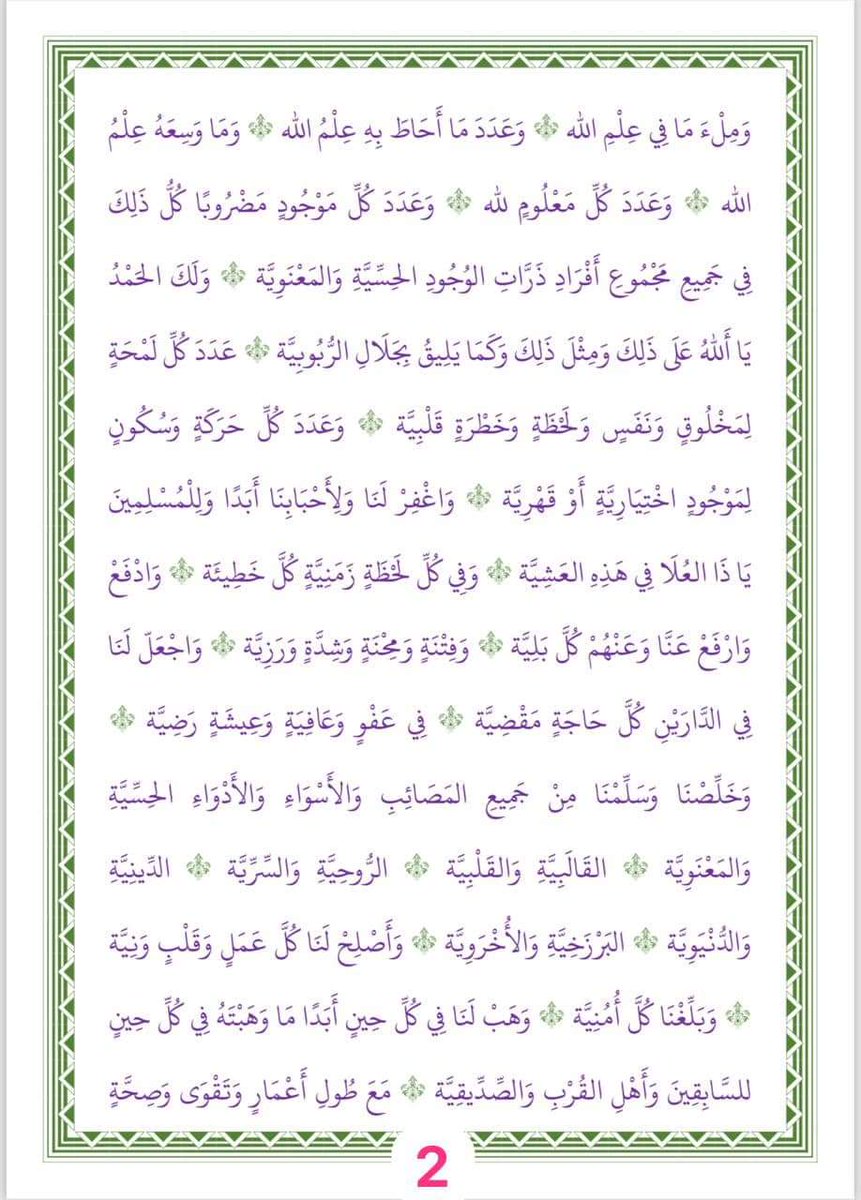 وَمِلْءَ مَا فِي عِلْمِ اللهِ وَعَدَدَ مَا أَحَاطَ بِهِ عِلْمُ اللهِ وَمَا وَسِعَهُ عِلْمُ
اللهِ وَعَدَدَ كُلِّ مَعْلُومٍ للهِ وَعَدَدَ كُلِّ مَوْجُودٍ مَضْرُوبًا كُلُّ ذَلِكَ
فِي جَمِيعِ مَجْمُوعِ أَفْرَادِ ذَرَّاتِ الوُجُودِ الحِسِّيَّةِ وَالمَعْنَوِيَّة وَلَكَ الحَمْدُ
يَا أَللهُ عَلَى ذَلِكَ وَمِثْلَ ذَلِكَ وَكَمَا يَلِيقُ بِجَلَالِ الرُّبُوبِيَّة عَدَدَ كُلِّ لَمْحَةٍ
لِمَخْلُوقٍ وَنَفَسٍ وَلَحْظَةٍ وَخَطْرَةٍ قَلْبِيَّة وَعَدَدَ كُلِّ حَرَكَةٍ وَسُكُونٍ
لِمَوْجُودٍ اخْتِيَارِيَّةٍ أَوْ قَهْرِيَّة وَاغْفِرْ لَنَا وَلِأَحْبَابِنَا أَبَدًا وَلِلْمُسْلِمِينَ
يَا ذَا العُلَا فِي هَذِهِ العَشِيَّة وَفِي كُلِّ لَحْظَةٍ زَمَنِيَّةٍ كُلَّ خَطِيئَة وَادْفَعْ
وَارْفَعْ عَنَّا وَعَنْهُمْ كُلَّ بَلِيَّة وَفِتْنَةٍ وَمِحْنَةٍ وَشِدَّةٍ وَرَزِيَّة وَاجْعَلّ لَنَا
فِي الدَّارَيْنِ كُلَّ حَاجَةٍ مَقْضِيَّة فِي عَفْوٍ وَعَافِيَةٍ وَعِيشَةٍ رَضِيَّة
وَخَلِّصْنَا وَسَلِّمْنَا مِنْ جَمِيعِ المَصَائِبِ وَالأَسْوَاءِ وَالأَدْوَاءِ الحِسِّيَّةِ
وَالمَعْنَوِيَّة القَالَبِيَّةِ وَالقَلْبِيَّة الرُّوحِيَّةِ وَالسِّرِّيَّة الدِّينِيَّةِ
وَالدُّنْيَوِيَّة البَرْزَخِيَّةِ وَالأُخْرَوِيَّة وَأَصْلِحْ لَنَا كُلَّ عَمَلٍ وَقَلْبٍ وَنِيَّة
وَبَلِّغْنَا كُلَّ أُمْنِيَّة وَهَبْ لَنَا فِي كُلِّ حِينٍ أَبَدًا مَا وَهَبْتَهُ فِي كُلِّ حِينٍ
للسَّابِقِينَ وَأَهْلِ القُرْبِ وَالصِّدِّيقِيَّة مَعَ طُولِ أَعْمَارٍ وَتَقْوَى وَصِحَّةٍ
2